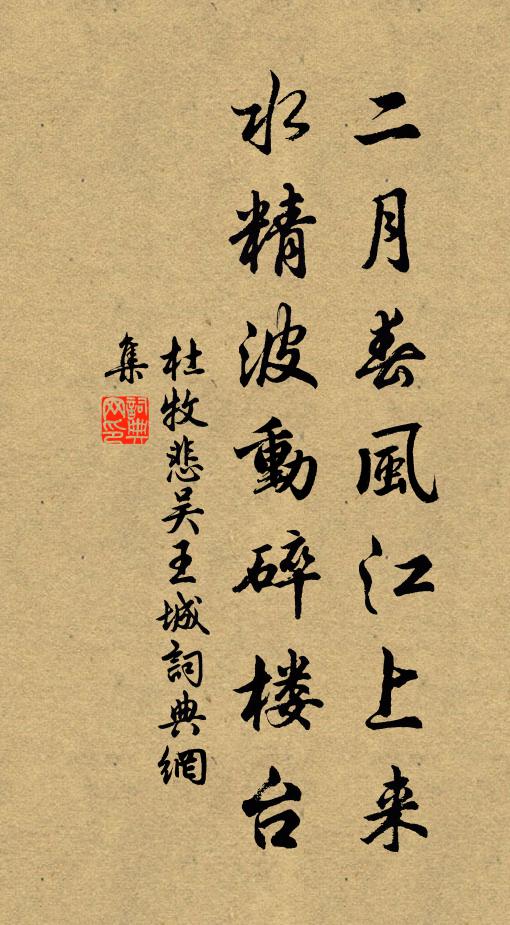 二月春風江上来
水精波動碎楼台
杜牧悲吴王城詞典網
集
詞典网印